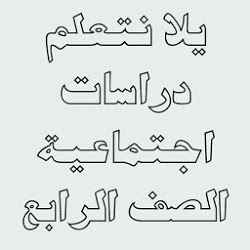 يلا نتعلم
دراسات
اجتماعية
الصف الرابع